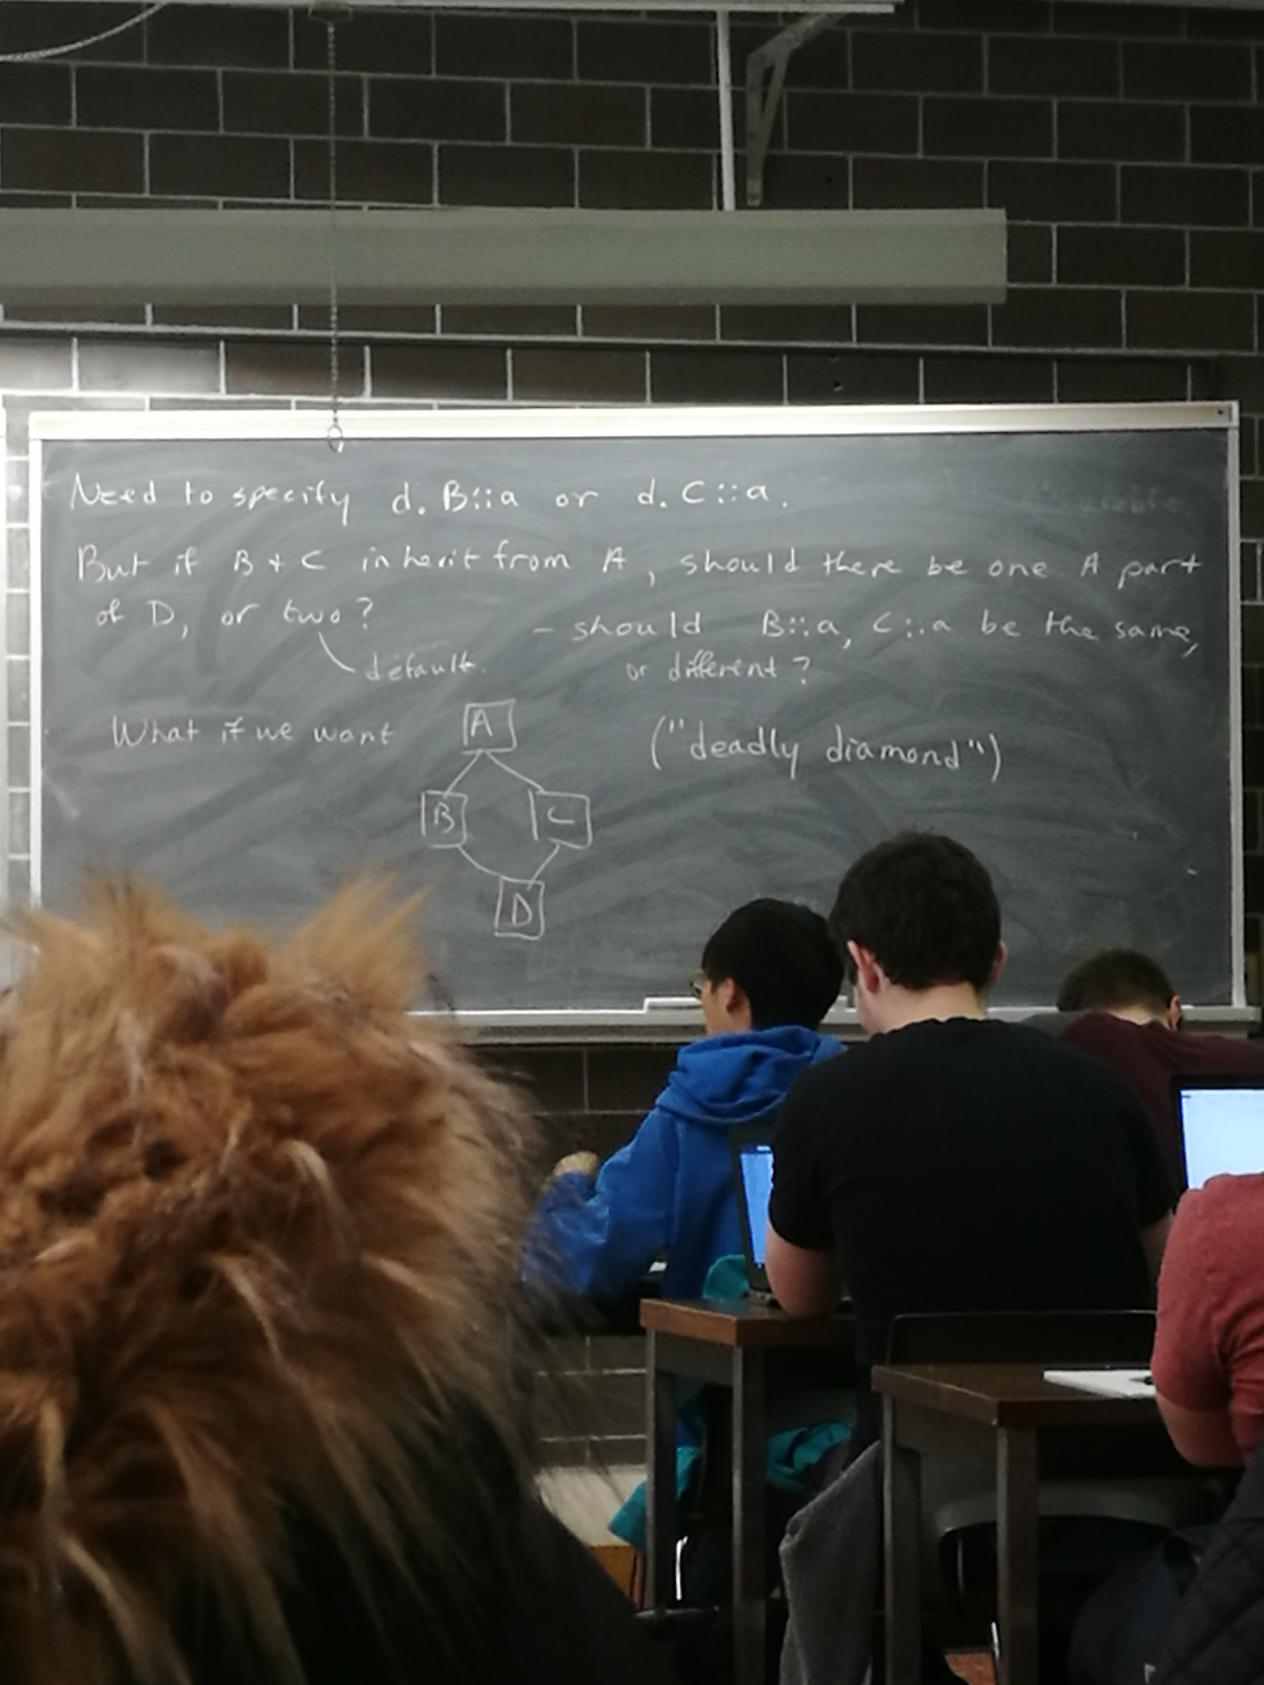 Need to specify d. B::a or d. C::a.
But if B + C inherit from A, should there be one A part
of D, or two?
default.
- should B::a, C::a be the same,
or different?
What if we want
("deadly diamond")
A
B C
D